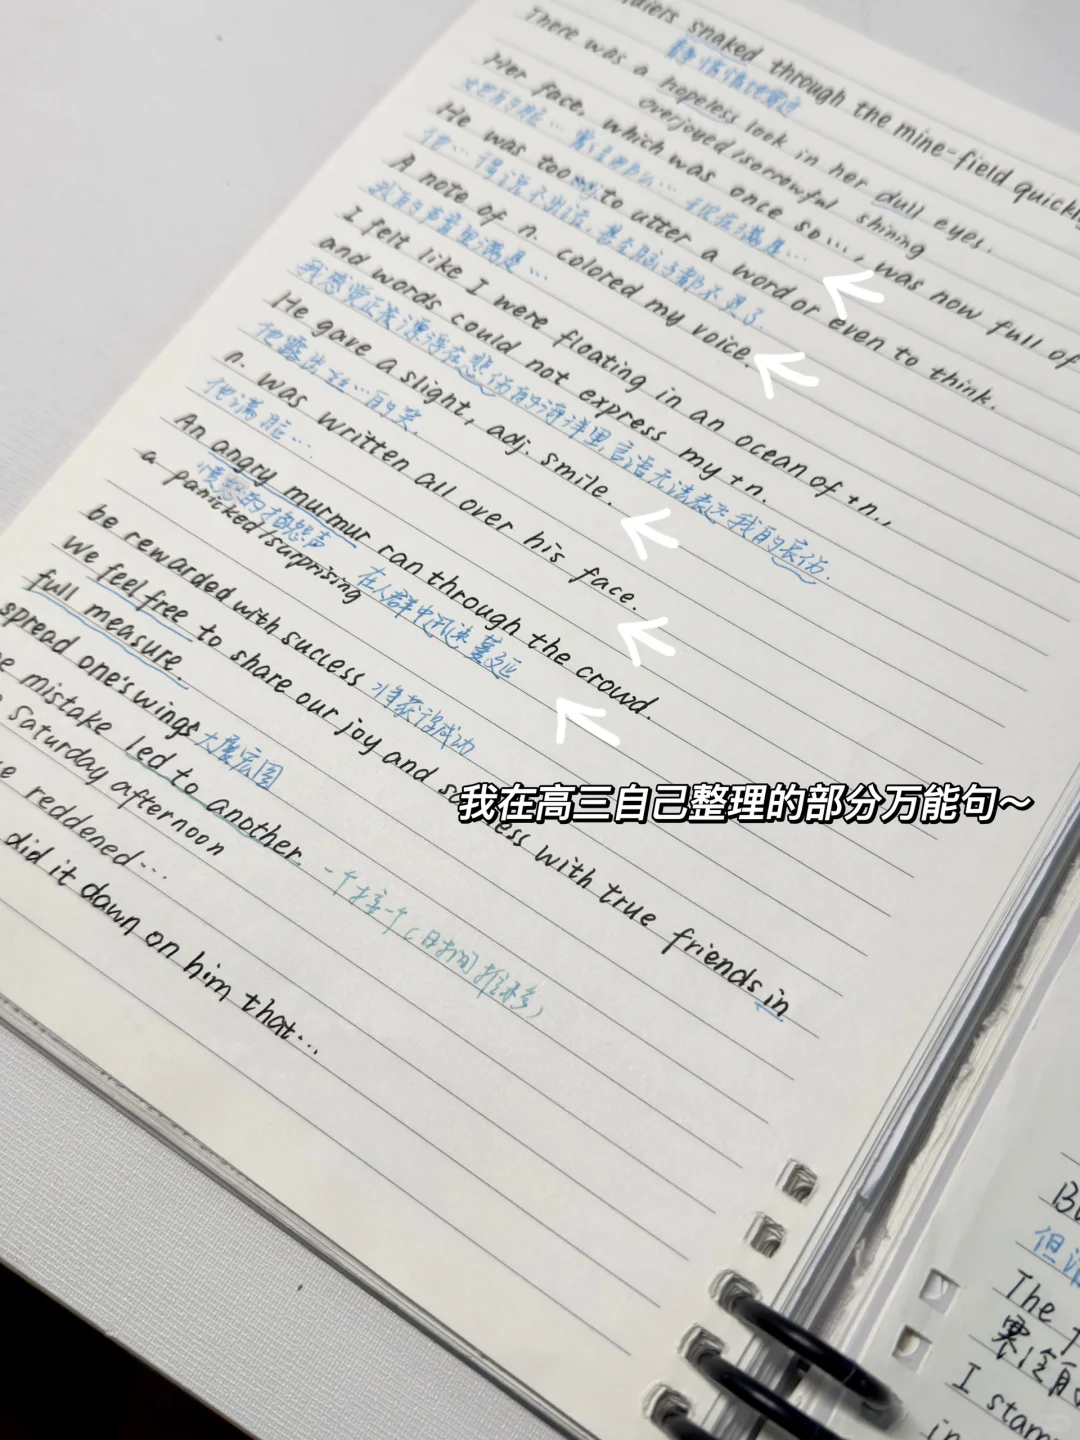 snaked through the mine-field quickly
静悄悄地穿过
There was a hopeless look in her dull eyes.
overjoyed/sorrowful shining
Her face, which was once so..., was now full of
她的脸…曾经那么…现在满是…
He was too to utter a word or even to think.
他…得说不出话，甚至脑子都不灵了.
A note of n. colored my voice.
我的声音里满是…
I felt like I were floating in an ocean of +n.,
and words could not express my +n.
我感觉正漂浮在悲伤的海洋里,言语无法表达我的哀伤.
He gave a slight, adj. smile.
他露出丝…的笑.
n. was written all over his face.
他满脸…
An angry murmur ran through the crowd.
愤怒的抱怨声 在人群中迅速蔓延
a panicked/surprising
be rewarded with success 将获得成功
We feel free to share our joy and with true friends in
full measure.
spread one's wings 大展宏图
mistake led to another. 一个接一个(时间推移)
Saturday afternoon
reddened...
did it dawn on him that...
我在高三自己整理的部分万能句～
但
The
寒冷
I